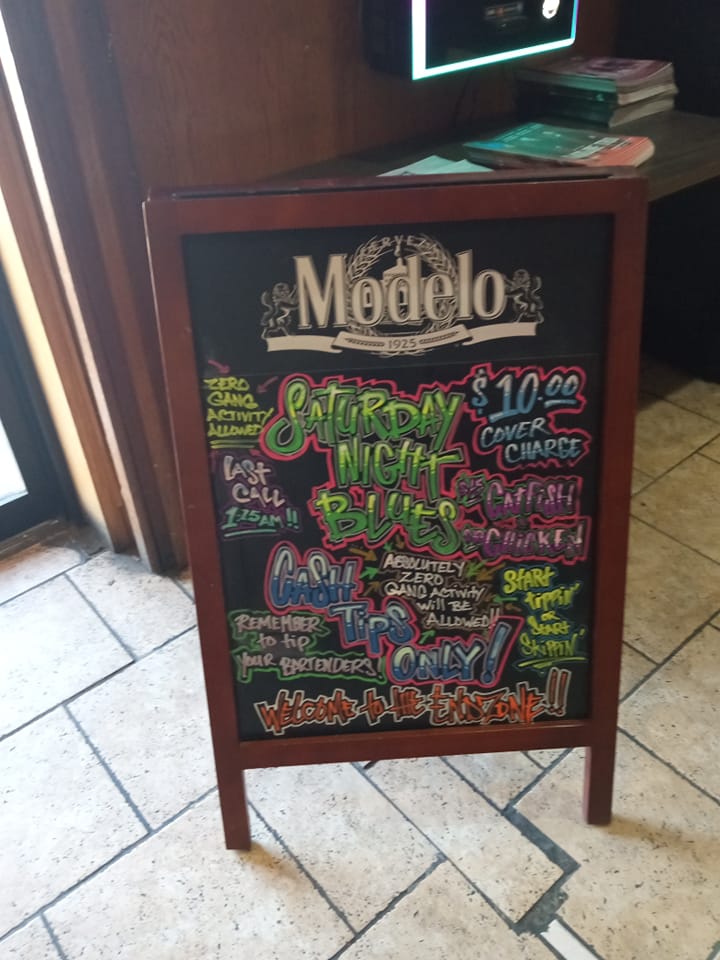 CERVEZA
Modelo
1925
ZERO
GANG
ACTIVITY
ALLOWED
SATURDAY
NIGHT
BLUES
$10.00
COVER
CHARGE
LAST
CALL
1:15AM!!
CATFISH
CHICKEN
CASH
TIPS
ONLY!
ABSOLUTELY
ZERO
GANG ACTIVITY
will BE
ALLOWED!!
START
tippin'
OR
START
SKIPPIN'
REMEMBER
to tip
YOUR BARTENDERS!
WELCOME to tHE ENDZONE!!